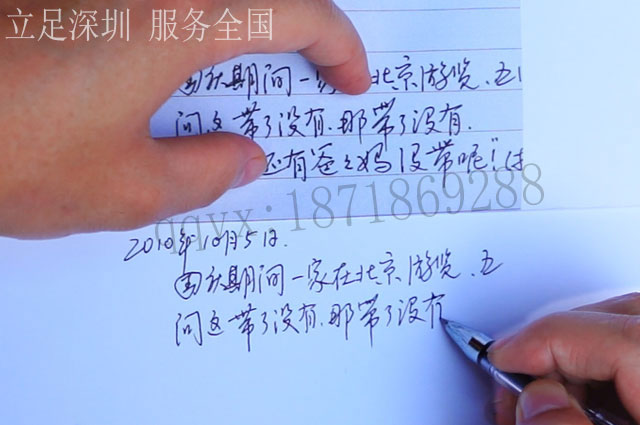 立足深圳 服务全国
国庆期间一家在北京游览、五
问这带了没有.那带了没有.
还有爸之妈没带呢!"(
qqvx:1871869288
2010年10月5日.
国庆期间一家在北京游览、五
问这带了没有.那带了没有